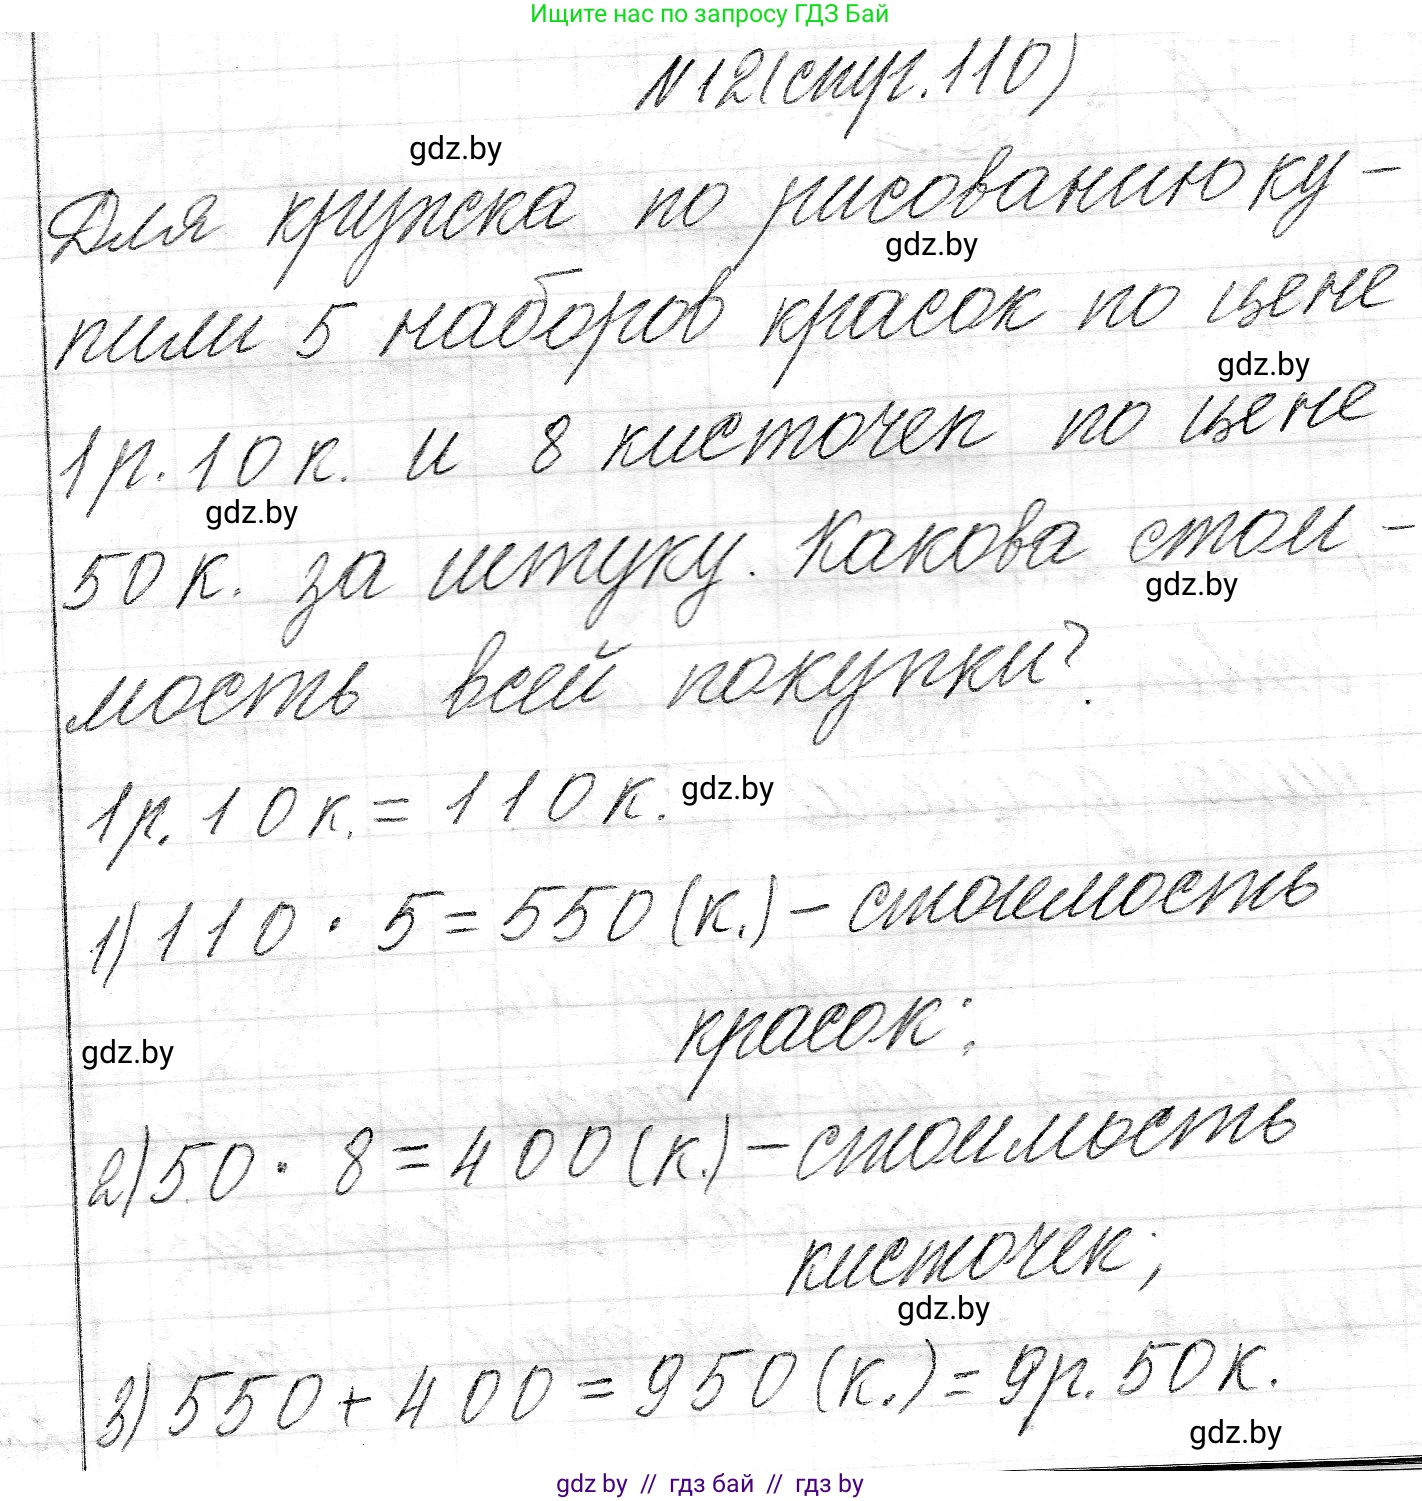 Ищите нас по запросу ГДЗ Бай
N 12 (стр. 110)
gdz.by
Для кружка по рисованию ку-
gdz.by
пили 5 наборов красок по цене
gdz.by
1 р. 10 к. и 8 кисточек по цене
gdz.by
50 к. за штуку. Какова стои-
gdz.by
мость всей покупки?
1 р. 10 к. = 110 к.
gdz.by
1) 110 · 5 = 550 (к.) - стоимость
красок;
gdz.by
2) 50 · 8 = 400 (к.) - стоимость
кисточек;
gdz.by
3) 550 + 400 = 950 (к.) = 9 р. 50 к.
gdz.by
gdz by // гдз бай // гдз by